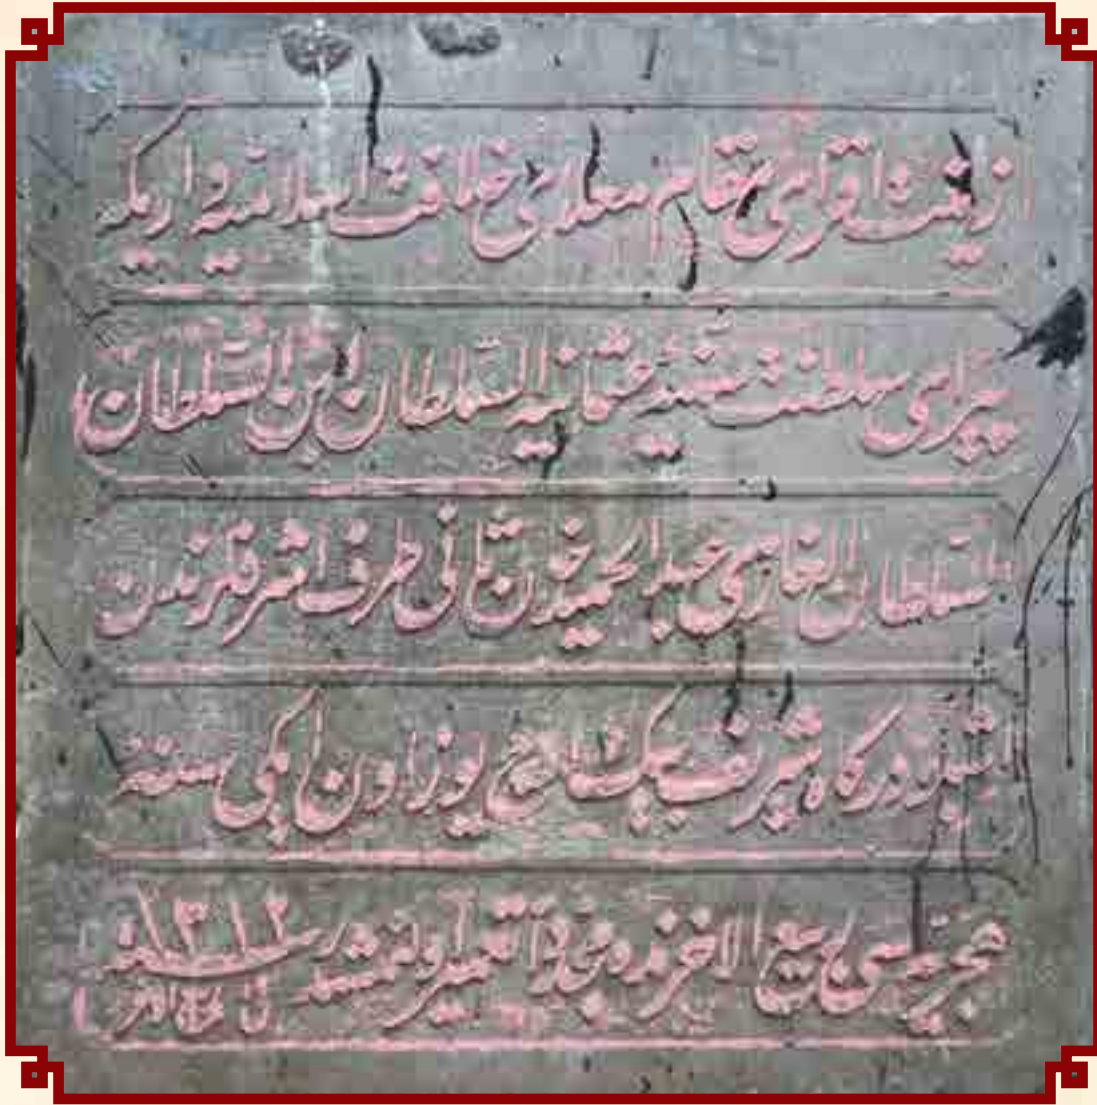 زينت افزاى مقام معلاى خلافت اسلاميه و اريكه
پيراى سلطنت سنيه عثمانيه السلطان ابن السلطان
السلطان الغازى عبد الحميد خان ثانى طرف اشرفلرندن
اشبو دركاه شريف بيك اوچ يوز اون ايكى سنه
هجريه سى ربيع الاخرنده مجددا تعمير اولنمشدر سنه ١٣١٢